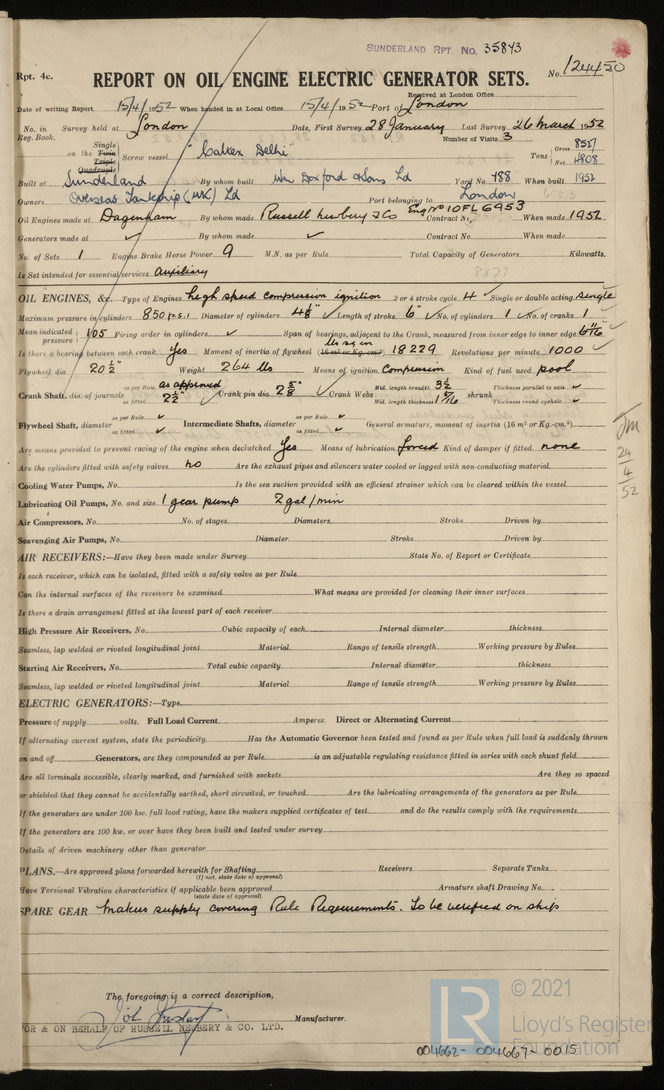 SUNDERLAND RPT. No. 35843
Rpt. 4c.
REPORT ON OIL ENGINE ELECTRIC GENERATOR SETS.
No. 124450
Received at London Office
Date of writing Report 15/4/1952 When handed in at Local Office 15/4/1952 Port of London
No. in Reg. Book. Survey held at London Date, First Survey 28 January Last Survey 26 March 1952
Number of Visits 3
on the Single Twin Triple Quadruple Screw vessel "Caltex Delhi" Tons Gross 8557 Net 4808
Built at Sunderland By whom built Wm Doxford & Sons Ld Yard No. 788 When built 1952
Owners Overseas Tankship (UK) Ld Port belonging to London
Oil Engines made at Dagenham By whom made Russell Newbery & Co Eng No 10FL6953 Contract No. When made 1952
Generators made at ✓ By whom made ✓ Contract No. When made
No. of Sets 1 Engine Brake Horse Power 9 M.N. as per Rule Total Capacity of Generators Kilowatts.
Is Set intended for essential services Auxiliary
OIL ENGINES, &c. Type of Engines high speed compression ignition 2 or 4 stroke cycle 4 Single or double acting single
Maximum pressure in cylinders 850 p.s.i. Diameter of cylinders 4⅛" Length of stroke 6" No. of cylinders 1 No. of cranks 1
Mean indicated pressure 105 Firing order in cylinders ✓ Span of bearings, adjacent to the Crank, measured from inner edge to inner edge
Is there a bearing between each crank Yes Moment of inertia of flywheel (16 m² or Kg.-cm.²) lbs sq in 18229 Revolutions per minute 1000
Flywheel dia. 20½" Weight 264 lbs Means of ignition Compression Kind of fuel used pool
Crank Shaft, dia. of journals as per Rule as approved as fitted 2½" Crank pin dia. 2⅝" Crank Webs Mid. length breadth 3½ Mid. length thickness Thickness parallel to axis ✓ shrunk Thickness round eyehole ✓
Flywheel Shaft, diameter as per Rule ✓ as fitted ✓ Intermediate Shafts, diameter as per Rule ✓ as fitted ✓ General armature, moment of inertia (16 m² or Kg.-cm.²)
Are means provided to prevent racing of the engine when declutched Yes Means of lubrication forced Kind of damper if fitted none
Are the cylinders fitted with safety valves no Are the exhaust pipes and silencers water cooled or lagged with non-conducting material
Cooling Water Pumps, No. Is the sea suction provided with an efficient strainer which can be cleared within the vessel
Lubricating Oil Pumps, No. and size 1 gear pump 2 gal/min
Air Compressors, No. No. of stages Diameters Stroke Driven by
Scavenging Air Pumps, No. Diameter Stroke Driven by
AIR RECEIVERS:—Have they been made under Survey State No. of Report or Certificate
Is each receiver, which can be isolated, fitted with a safety valve as per Rule
Can the internal surfaces of the receivers be examined What means are provided for cleaning their inner surfaces
Is there a drain arrangement fitted at the lowest part of each receiver
High Pressure Air Receivers, No. Cubic capacity of each Internal diameter thickness
Seamless, lap welded or riveted longitudinal joint Material Range of tensile strength Working pressure by Rules
Starting Air Receivers, No. Total cubic capacity Internal diameter thickness
Seamless, lap welded or riveted longitudinal joint Material Range of tensile strength Working pressure by Rules
ELECTRIC GENERATORS:—Type
Pressure of supply volts. Full Load Current Amperes. Direct or Alternating Current
If alternating current system, state the periodicity Has the Automatic Governor been tested and found as per Rule when full load is suddenly thrown
on and off Generators, are they compounded as per Rule is an adjustable regulating resistance fitted in series with each shunt field
Are all terminals accessible, clearly marked, and furnished with sockets Are they so spaced
or shielded that they cannot be accidentally earthed, short circuited, or touched Are the lubricating arrangements of the generators as per Rule
If the generators are under 100 kw. full load rating, have the makers supplied certificates of test and do the results comply with the requirements
If the generators are 100 kw. or over have they been built and tested under survey
Details of driven machinery other than generator
PLANS.—Are approved plans forwarded herewith for Shafting Receivers Separate Tanks
(If not, state date of approval)
Have Torsional Vibration characteristics if applicable been approved Armature shaft Drawing No.
(state date of approval)
SPARE GEAR Makers supply covering Rule Requirements. To be verified on ship
24
4
52
The foregoing is a correct description,
Manufacturer.
FOR & ON BEHALF OF RUSSELL NEWBERY & CO. LTD.
LR
© 2021
Lloyd's Register
Foundation
004662-004667-0015